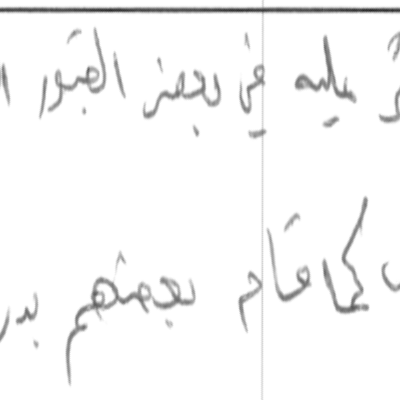 عليه في بعض القبور
كما قام بعضهم